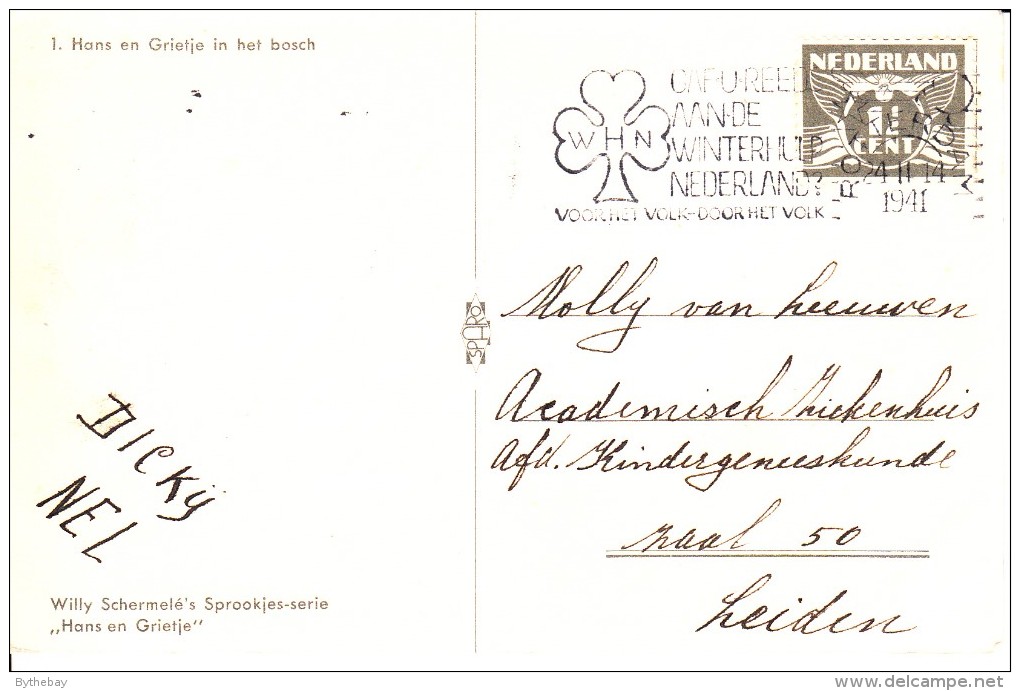 1. Hans en Grietje in het bosch
NEDERLAND
CENT
GAF·U·REED
AAN·DE
WINTERHULP
NEDERLAND?
VOOR HET VOLK-DOOR HET VOLK
W H N
24 II 14
1941
Molly van Leeuwen
SPARO
Academisch Ziekenhuis
Afd. Kindergeneeskunde
zaal 50
Leiden
DICKY
NEL
Willy Schermelé's Sprookjes-serie
„Hans en Grietje"
Bythebay
www.delcampe.net